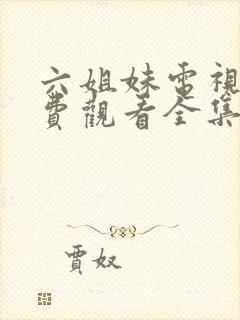 六姐妹電視
費觀看全集
賈奴